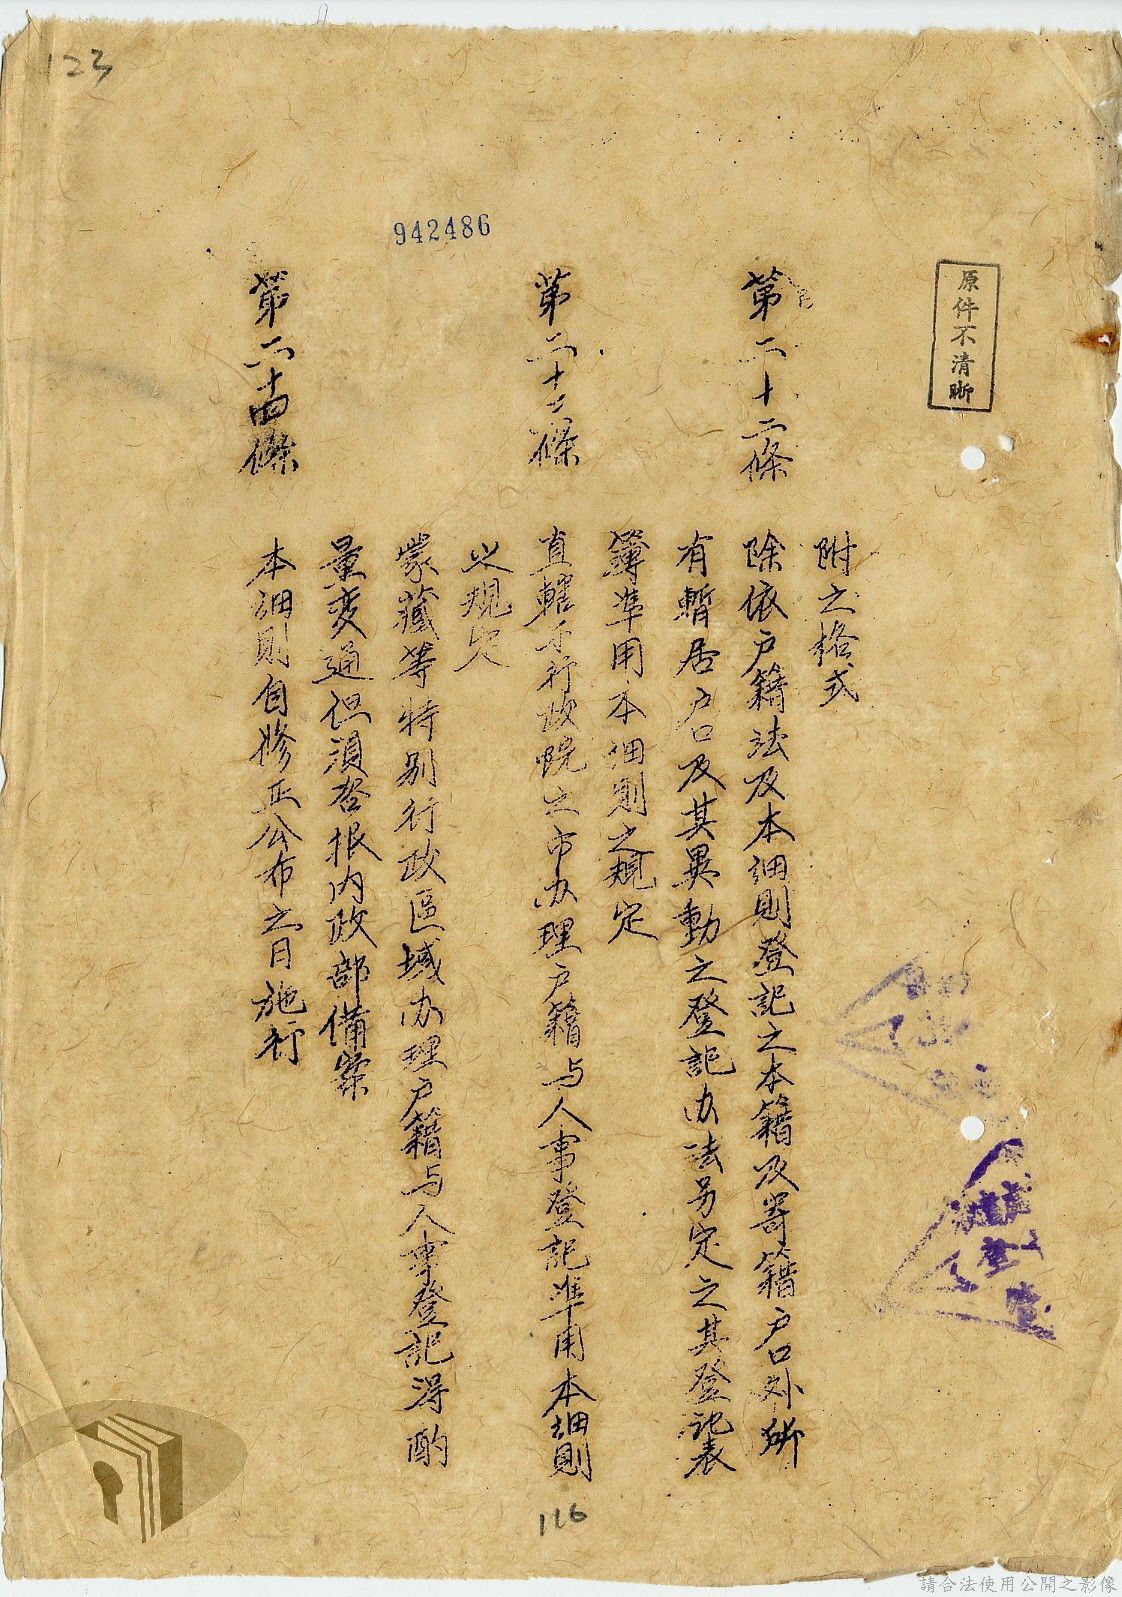 123
942486
原件不清晰
附之格式
第二十二條 除依户籍法及本細則登記之本籍及寄籍户口外鄉
有暫居户口及其異動之登記办法另定之其登記表
簿準用本細則之規定
第二十三條 直轄于行政院之市办理户籍与人事登記準用本細則
之規定
蒙藏等特别行政區域办理户籍与人事登記得酌
量变通但須咨报内政部備案
第二十四條 本細則自修正公布之日施行
116
請合法使用公開之影像